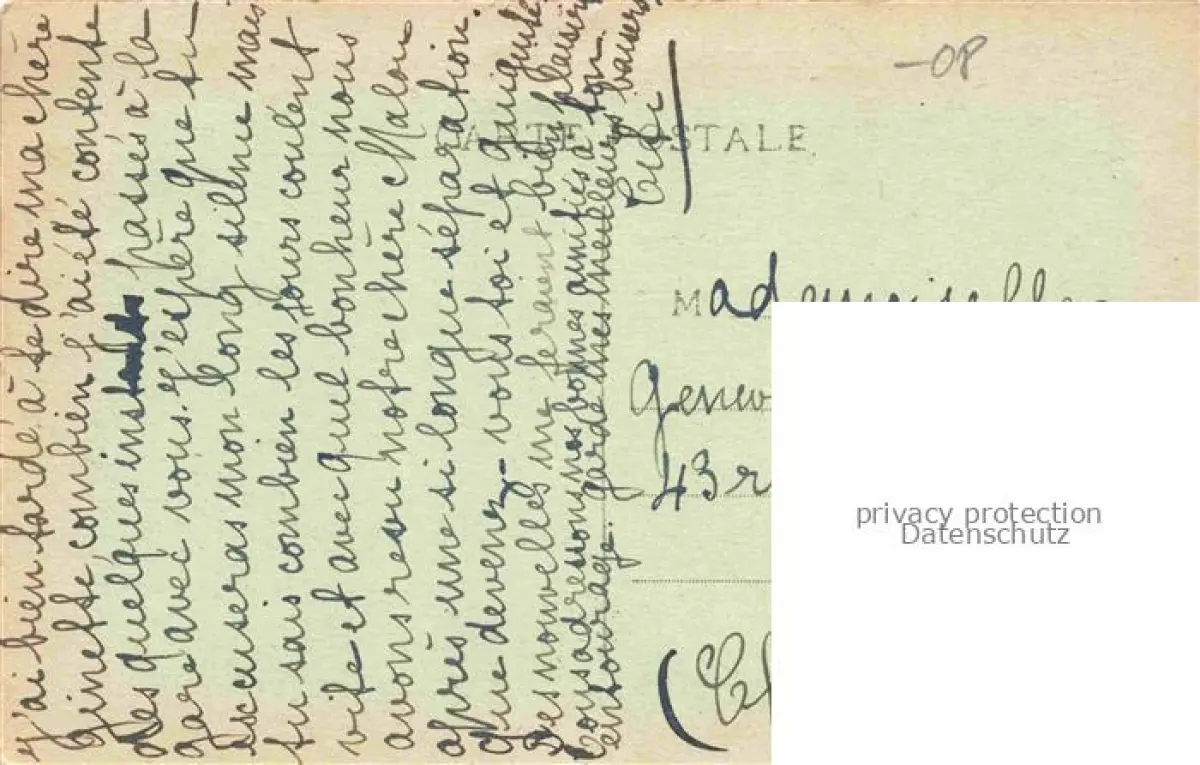 J'ai bien tardé à te dire ma chère
Ginette, combien j'ai été contente
des quelques instants passés à la
gare avec vous. J'espère que tu
excuseras mon long silence mais
tu sais combien les jours coulent
vite et avec quel bonheur nous
avons reçu notre chère Malou
après une si longue séparation.
Que devenez-vous toi et
Des nouvelles me feraient bien plaisir
Nous adressons nos bonnes amitiés à ton
entourage. garde mes meilleurs baisers.
-08
CARTE POSTALE
Mademoiselle
Genev
43 r
privacy protection
Datenschutz